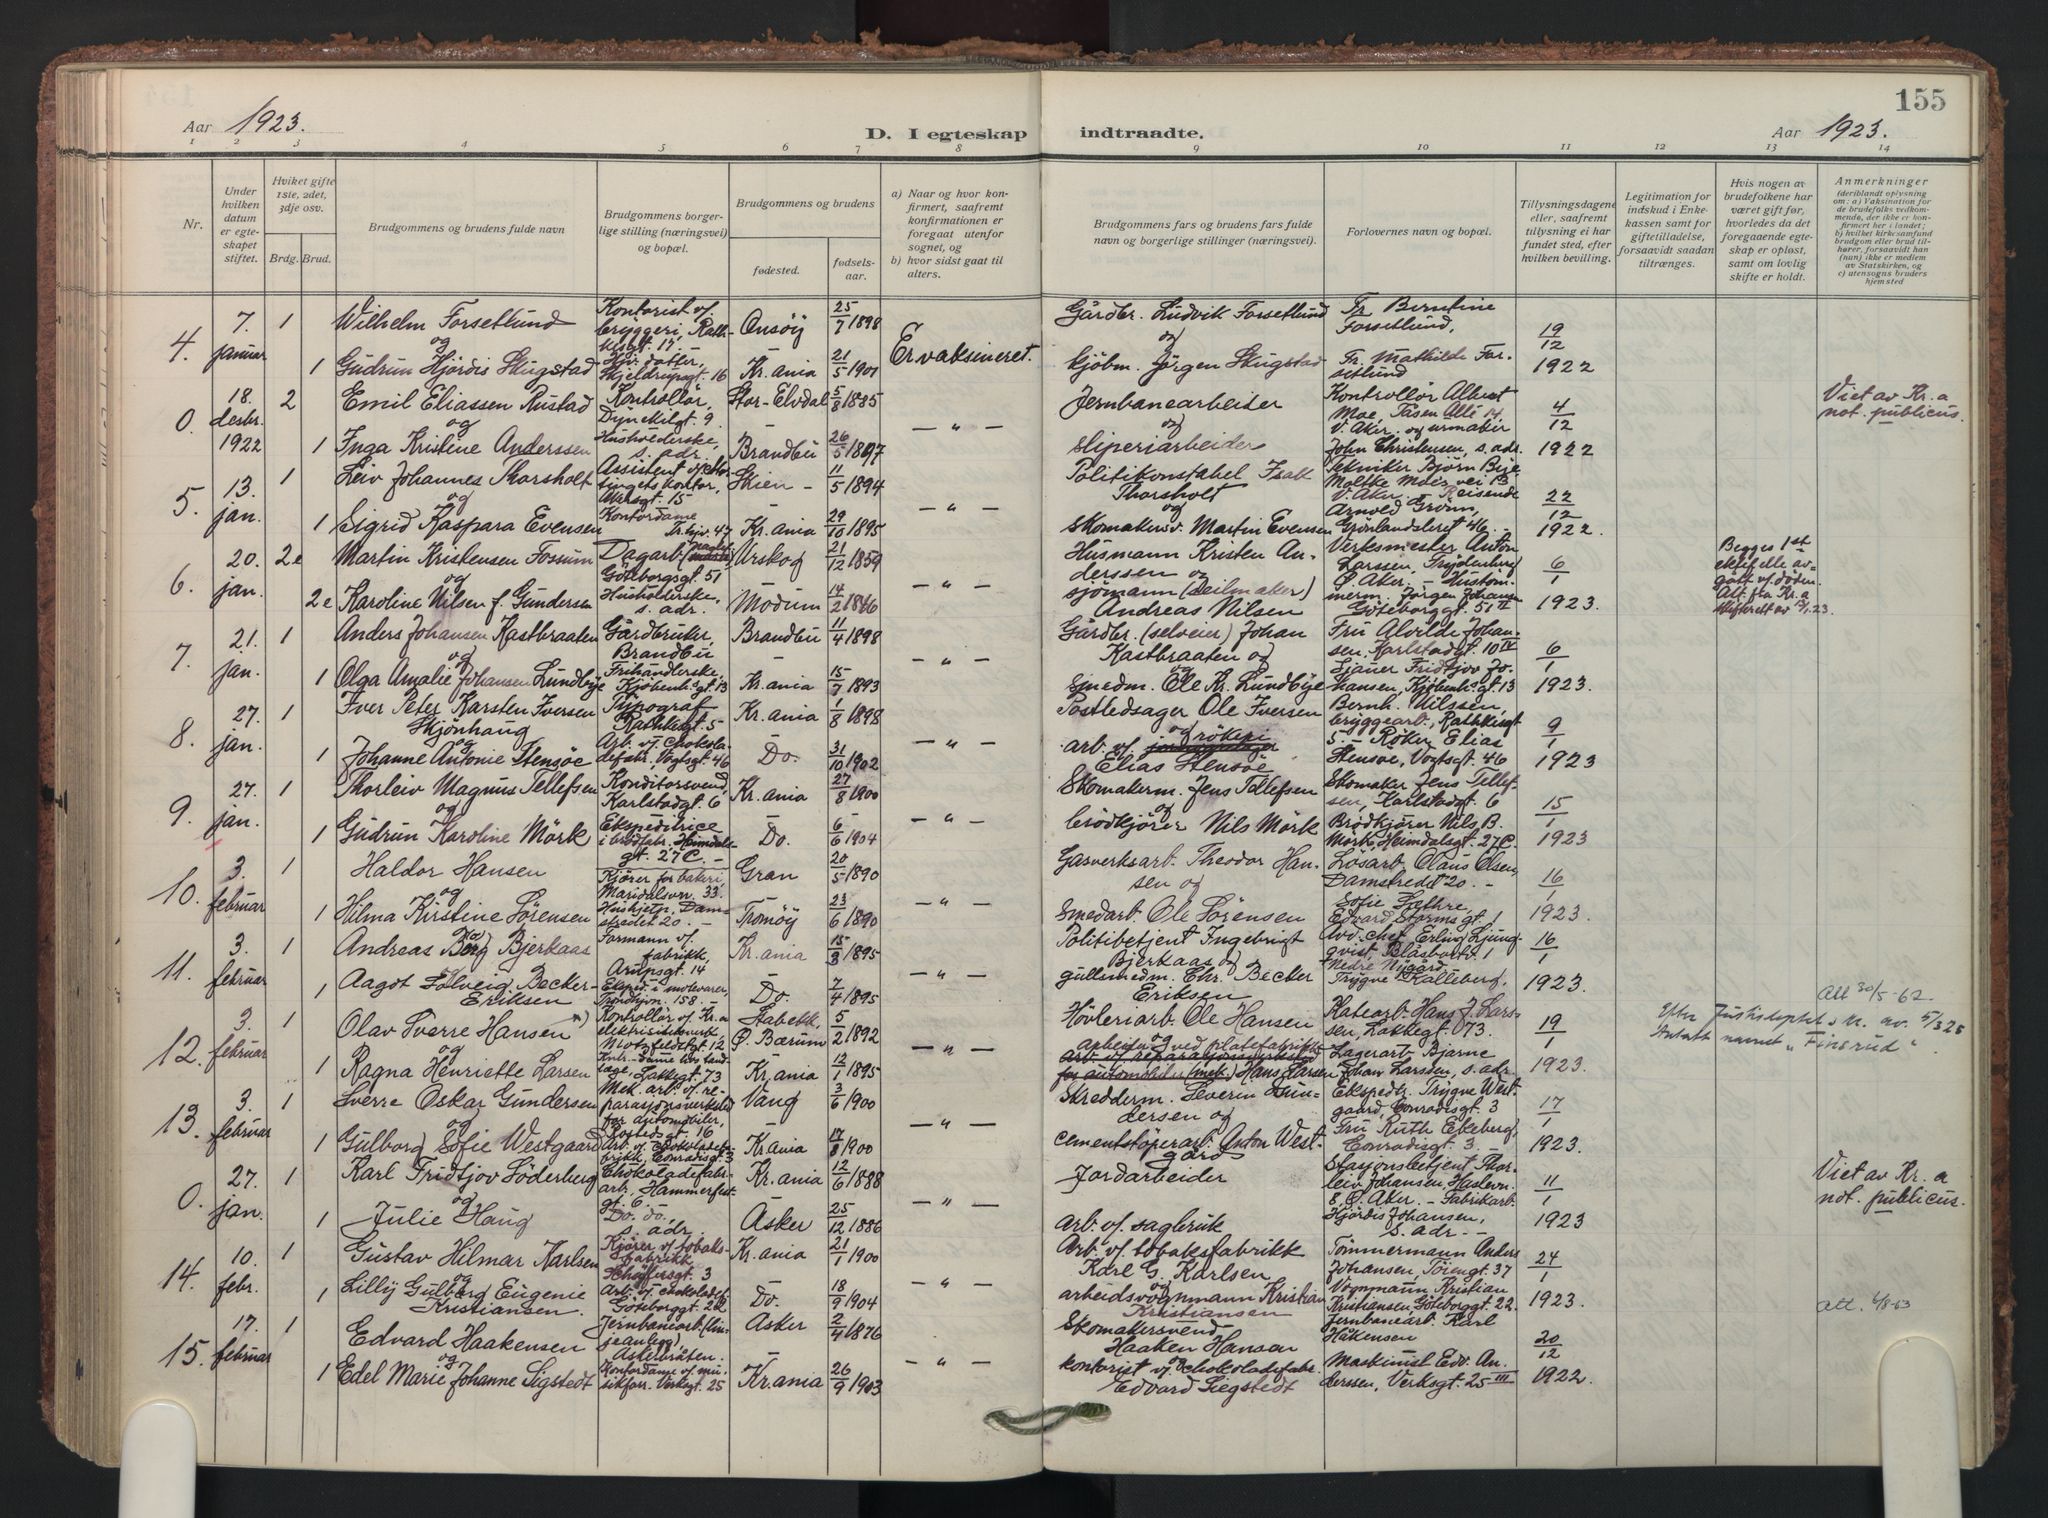 155
Aar 1923.
D. I egteskap indtraadte.
Aar 1923.
1 2 3 4 5 6 7 8 9 10 11 12 13 14
Nr.
Under hvilken datum er egteskapet stiftet.
Hviket gifte 1ste, 2det, 3dje osv.
Brdg. Brud.
Brudgommens og brudens fulde navn
Brudgommens borgerlige stilling (næringsvei) og bopæl.
Brudgommens og brudens
fødested.
fødselsaar.
a) Naar og hvor konfirmert, saafremt konfirmationen er foregaat utenfor sognet, og
b) hvor sidst gaat til alters.
Brudgommens fars og brudens fars fulde navn og borgerlige stillinger (næringsvei).
Forlovernes navn og bopæl.
Tillysningsdagene eller, saafremt tillysning ei har fundet sted, efter hvilken bevilling.
Legitimation for indskud i Enkekassen samt for giftetilladelse, forsaavidt saadan tiltrænges.
Hvis nogen av brudefolkene har været gift før, hvorledes da det foregaaende egteskap er opløst, samt om lovlig skifte er holdt.
Anmerkninger
(deriblandt oplysning om: a) Vaksination for de brudefolks vedkommende, der ikke er konfirmert her i landet; b) hvilket kirkesamfund brudgom eller brud tilhører, forsaavidt han (hun) ikke er medlem av Statskirken, og c) utensogns bruders hjemsted
4. 7. januar 1 Wilhelm Forsetlund Kontorist v/ bryggeri, Rathkesgt. 17, Onsöy 25/7 1898 Er vaksineret. Gårdbr. Ludvik Forsetlund Fr. Berntine Forsetlund, 19/12
og
1 Gudrun Hjördis Skugstad Hjv. datter, Skjeldrupsgt. 16 Kr.ania 21/5 1901 kjöbm. Jörgen Skugstad Fr. Mathilde Forsetlund 1922
0. 18. desbr. 1922 2 Emil Eliassen Rustad Kontrollör, Dynekilgt. 9. Stor-Elvdal 5/8 1885 — " — Jernbanearbeider Kontrollör Albert Moe, Tåsen Allé 14, V. Aker. og urmaker 4/12 Viet av Kr.a not. publicus.
og
1 Inga Kristine Anderssen Husholderske, s. adr. Brandbu 26/5 1897 sliperiarbeider John Christensen, s. adr. 1922
5. 13. jan. 1 Leiv Johannes Thorsholt Assistent v/ Stortingets kontor, Akersgt. 15 Skien 11/5 1894 — " — Politikonstabel Isak Thorsholt Tekniker Björn Bye Moltke Moes vei 13 V. Aker. Reisende 22/12
og
1 Sigrid Kaspara Evensen Kontordame Kr.ania 29/10 1895 Skomakersv. Martin Evensen Arnold Grönn, Grönlandsleret 46. 1922.
6. 20. jan. 2e Martin Kristensen Fossum Dagarb. Göteborgsgt. 51 Urskog 21/12 1859 — " — Husmann Kristen Anderssen Verksmester Anton Larssen, Ö. Aker. 6/1 Begges 1st ektefelle avgått v/ döden.
og
2e Karoline Nilsen f. Gundersen Husholderske, s. adr. Modum 14/2 1866 sjömann (seilmaker) Andreas Nilsen Jörgen Johansen Göteborggt. 51 II 1923.
7. 21. jan. 1 Anders Johansen Kastbraaten Gårdbruker, Brandbu Brandbu 11/4 1898 — " — Gårdbr. (selveier) Johan Kastbraaten og Fru Alvilde Johansen, Karlstadgt. 10 IV 6/1
og
1 Olga Amalie Johansen Lundbye Frihandlerske, Kjöbenh.gt. 13 Kr.ania 15/7 1893 smedm. Ole Kr. Lundbye Sjauer Fridtjov Johansen, Kjöbenh.gt. 13 1923.
8. 27. jan. 1 Iver Peter Karsten Iversen Skjönhaug Typograf Rathkegt. 5 Kr.ania 1/8 1898 — " — Postledsager Ole Iversen Bernh. Nilssen, bryggearb., Rathkesgt 5. - Röker Elias 9/1
og
1 Johanne Antonie Stensöe Arb. v/ chokoladefabr., Vogtsgt. 46 Do. 31/10 1902 arb. v/ rökeri Elias Stensöe Stensöe, Vogtsgt. 46 1923
9. 27. jan. 1 Thorleiv Magnus Tellefsen Konditorsvend, Karlstadgt. 6 Kr.ania 27/8 1900 — " — Skomakerm. Jens Tellefsen Skomaker Jens Tellefsen, Karlstadgt. 6 15/1
og
1 Gudrun Karoline Mörk Ekspeditrice i brödfabr. Heimdalsgt. 27 C. Do. 6/6 1904 brödkjörer Nils Mörk Brödkjörer Nils B. Mörk, Heimdalsgt. 27 C. 1923
10. 3. februar 1 Haldor Hansen Kjörer for bakeri, Maridalsvn. 33. Gran 20/5 1890 — " — Gasverksarb. Theodor Hansen og Lösarb. Olaus Olsen, Damstredet 20. 16/1
og
1 Hilma Kirstine Sörensen Hushjelp, Damstredet 20. Tromöy 23/6 1890 Smedarb. Ole Sörensen Sofie Sæthre, Edvard Stormsgt. 1 1923.
11. 3. februar 1 Andreas Berg Bjerkaas Formann v/ fabrikk, Arupsgt. 14 Kr.ania 15/3 1895 — " — Politibetjent Ingebrigt Bjerkaas og Avd.chef Erling Ljungqvist, 16/1
og
1 Aagot Solveig Becker-Eriksen Eksped. i motevarer, Trondhjvn. 158. Do. 7/4 1895 gullsmedm. Chr. Becker Eriksen Trygve Kalleberg, 1923.
12. 3. februar 1 Olav Sverre Hansen Kontrollör v/ Kr.a elektrisitetsverk, Motzfeldtsgt. 12 Stabekk, Ö. Bærum 5/2 1892 — " — Hövleriarb. Ole Hansen Katearb. Hans J. Larssen, Lakkegt. 73. 19/1 Att 30/5-62. Efter Justisdeptets kr. av 5/3 25 antatt navnet "Finsrud".
og
1 Ragna Henriette Larsen Lakkegt. 73 Kr.ania 12/1 1895 Arbeider ved platefabrikk Hans Larsen Lagerarb. Bjarne Johan Larssen, s. adr. 1923.
13. 3. februar 1 Sverre Oskar Gundersen Mek. arb. v/ reparasjonsverksted for automobiler, 16 Vang 3/6 1900 — " — Skredderm. Severin Gundersen og Ekspedtr. Trygve Westgaard, Conradisgt. 3 17/1
og
1 Gulborg Sofie Westgaard Arb. v/ chokoladefabrikk, Conradisgt. 3 Kr.ania 17/8 1900 cementstöperarb. Anton Westgård Fru Ruth Ekeberg, Conradisgt. 3. 1923.
0. 27. jan. 1 Karl Fridtjov Söderberg Chokoladefabr. arb., Hammerfestgt. 6. Kr.ania 12/6 1888 — " — Jordarbeider Stasjonsbetjent Thorleiv Johansen, Haslevn. 8. Ö. Aker. - Fabrikarb. 11/1 Viet av Kr.a not. publicus.
og
1 Julie Haug Do. do. s. adr Asker 25/12 1886 arb. v/ sagbruk Hjördis Johansen, s. adr. 1923
14. 10. febr. 1 Gustav Hilmar Karlsen Kjörer v/ tobaksfabrikk Schöflersgt. 3 Kr.ania 21/1 1900 — " — Arb. v/ tobaksfabrikk Karl G. Karlsen Tömmermann Anders Johansen, Töiengt. 37 24/1
og
1 Lilly Gulborg Eugenie Kristiansen. Arb. v/ chokoladef. Göteborggt. 22 Do. 18/9 1904 arbeidsvognmann Kristian Kristiansen Vognmann Kristian Kristiansen, Göteborggt. 22. 1923. Att. 6/8-63
15. 17. februar 1 Edvard Haakensen Jernbanearb. (linjeanlegg), Askerbråten. Asker 2/4 1876 — " — Skomakersvend Haaken Hansen Jernbanearb. Karl Håkensen 20/12
og
1 Edel Marie Johanne Sigstedt Kontordame v/ musikforr. Verksgt. 25 Kr.ania 26/9 1903 kontorist v/ chokoladefabr. Edvard Siegstedt Maskinist Edv. Anderssen, Verksgt. 25 III 1922.